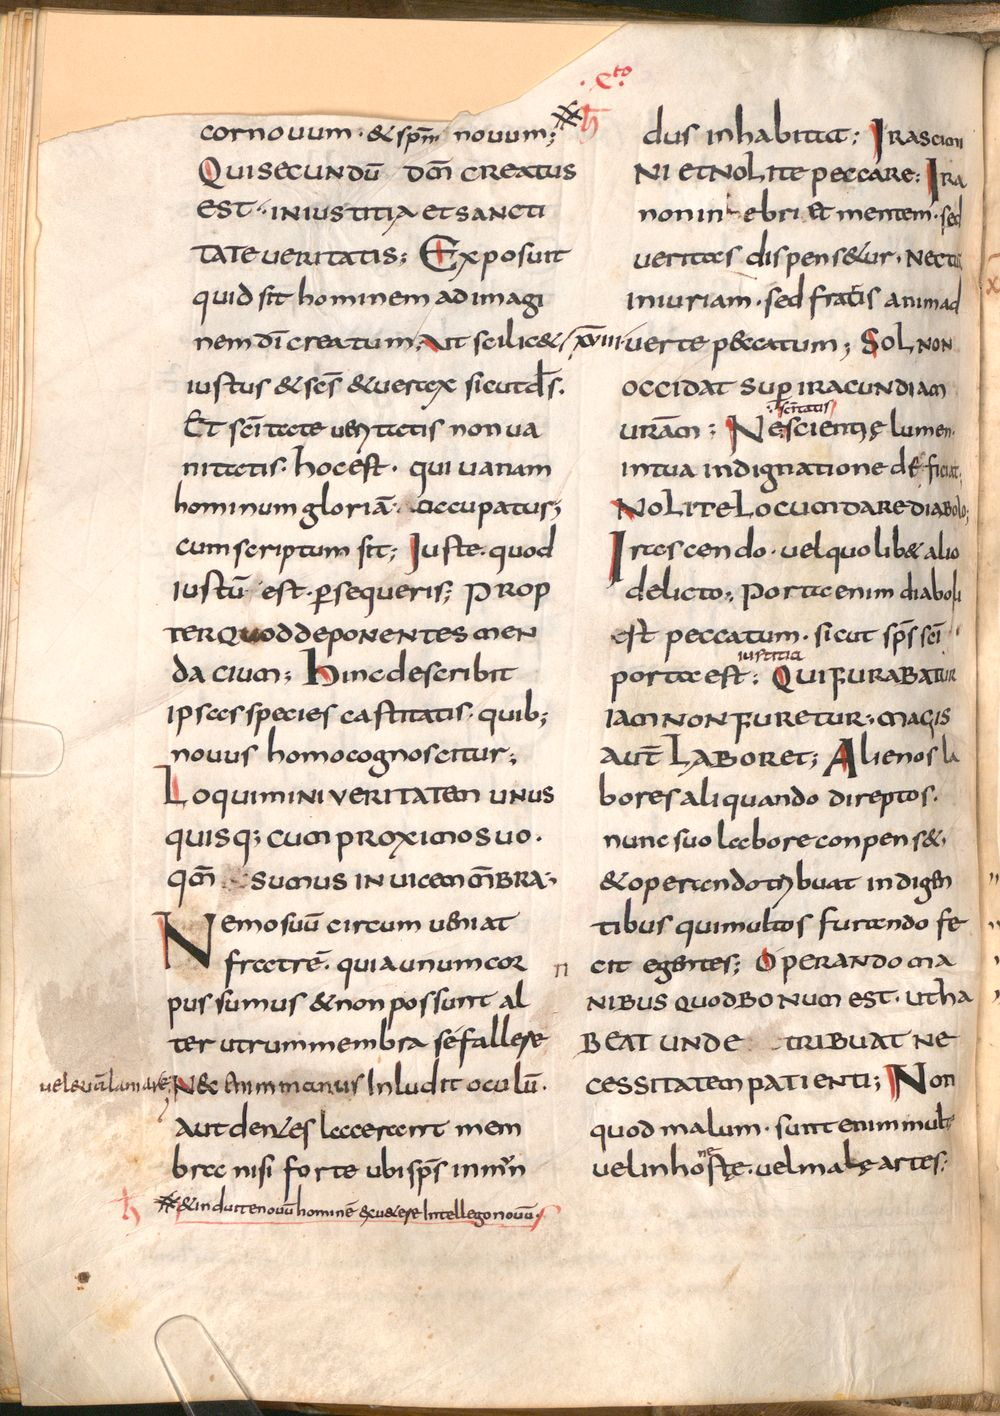 ·eto·
cor nouum · & spm̄ nouum;
Qui secundū dm̄ creatus
est · in iustitia et sancti
tate ueritatis; Exposuit
quid sit hominem ad imagi
nem dī creatum; Aut scilic&
iustus & scs̄ & uerax sicut ds̄.
Et scītate ueritatis non ua
nitatis · hoc est · qui uanam
hominum gloriā occupatus;
cum scriptum sit; Iuste · quod
iustū est · persequeris; Prop
ter quod deponentes men
dacium; Hinc describit
ipsas species castitatis · quib;
nouus homo cognoscitur;
Loquimini ueritatem unus
quisq; cum proximo suo ·
qm̄ sumus inuicem mm̄bra;
Nemo suū circumueniat
fratrē · quia unum cor
pus sumus & non possunt al
terutrum membra se fallere
uel
Nec enim manus inludit oculū ·
Aut dentes lacerant mem
bra nisi forte ubi sps̄ inmn
& induite nouū hominē intellego nouū
dus inhabitat; Irascimi
ni et nolite peccare; Ira
non in ebri&mentem · sed
ueritas dispens&ur · Nec
iniuriam · sed fratis animad
xviii uerte peccatum; Sol non
occidat super iracundiam
scītatis
uram̄; Nescientię lumen
in tua indignatione deficiat
Nolite locum dare diabolo;
Irascendo · uel quolib& alio
delicto; Porta enim diaboli
est peccatum · sicut sps̄ scī
iustitia
porta est; Qui furabatur
iam non furetur; magis
aut̄ laboret; Alienos la
bores aliquando direptos ·
nunc suo labore conpens& ·
& operando tribuat indigen
tibus qui multos furando fe
cit egentes; Operando ma
nibus quod bonum est · ut ha
beat unde tribuat ne
cessitatem patienti; Non
quod malum · sunt enim mult
ne
uel inhostę · uel malę artes;